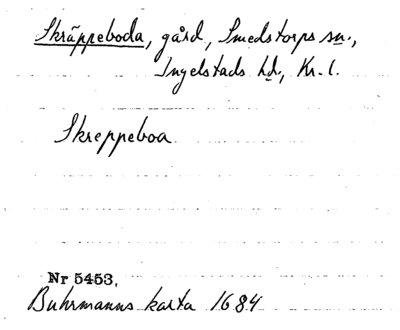 Skräppeboda, gård, Smedstorps sn.,
Ingelstads hd., Kr. l.
Skreppeboa
Nr 5453.
Buhrmanns karta 1684